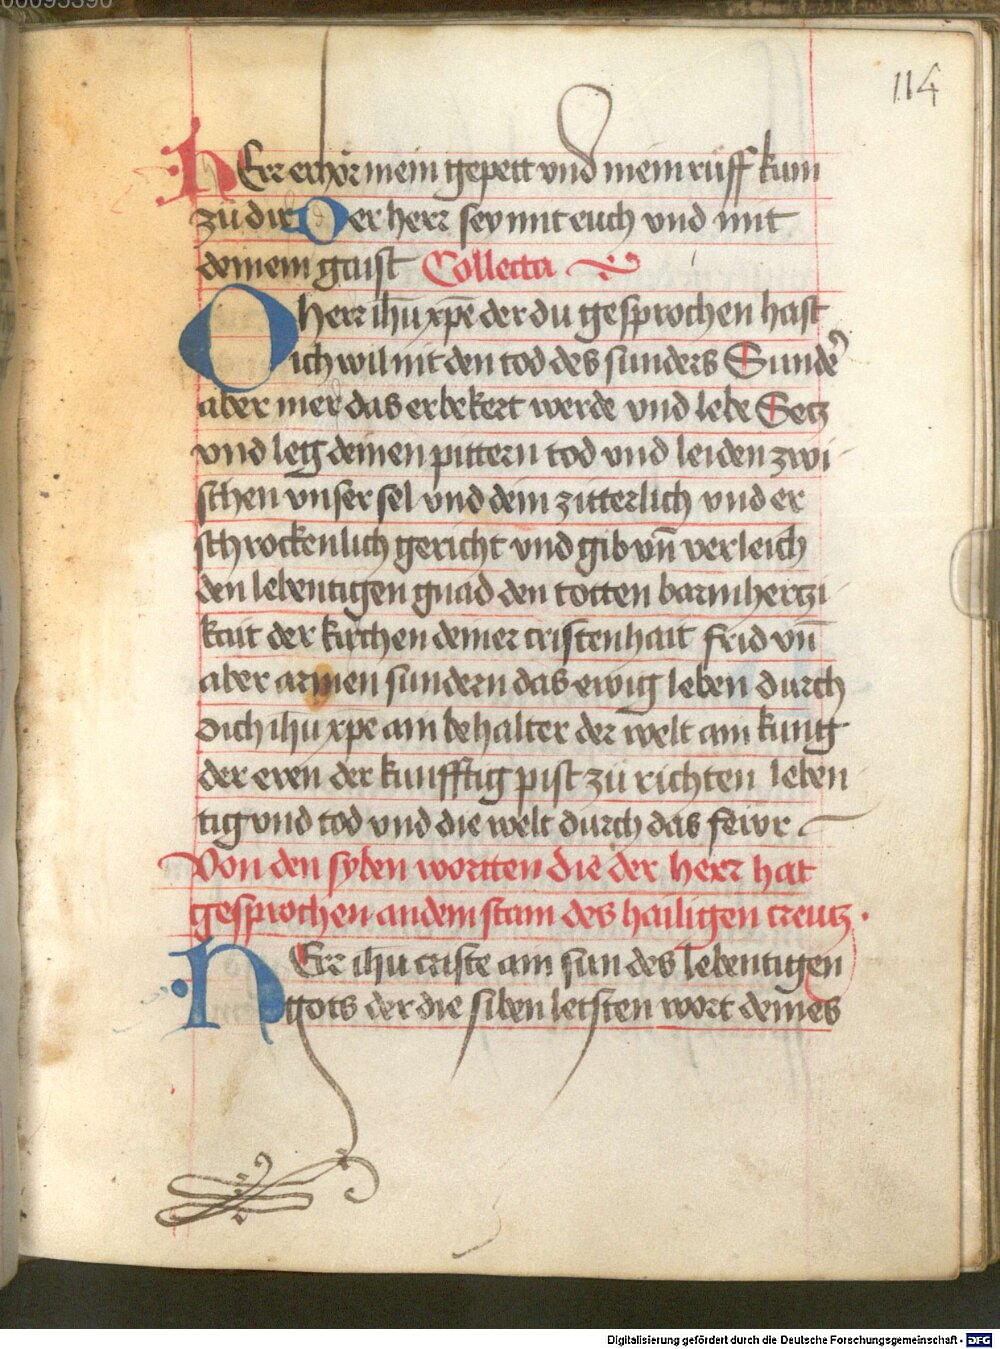 00095390
114
HErr erhör mein gepett vnd mein rüff kum
zů dir Der herr sey mit euch vnd mit
deinem gaist Collecta
O herr ihū xp̄e der du gesprochen hast
ich wil nit den tod des sunders Sunder
aber mer das er bekert werde vnd lebe Setz
vnd leg deinen pittern tod vnd leiden zwi
schen vnser sel vnd dein zitterlich vnd er
schrockenlich gericht vnd gib vn̄ verleich
den lebentigen gnad den totten barmhertzi
kait der kirchen deiner cristenhait frid vn̄
aber armen sundern das ewig leben durch
dich ihū xp̄e ain behalter der welt ain kunig
der eren der kunfftig pist zů richten leben
tig vnd tod vnd die welt durch das fewr
Von den syben wortten die der herr hat
gesprochen an dem stam des hailigen creutz
HErr ihū criste ain sun des lebentigen
gots der die siben letsten wort deines
Digitalisierung gefördert durch die Deutsche Forschungsgemeinschaft - DFG